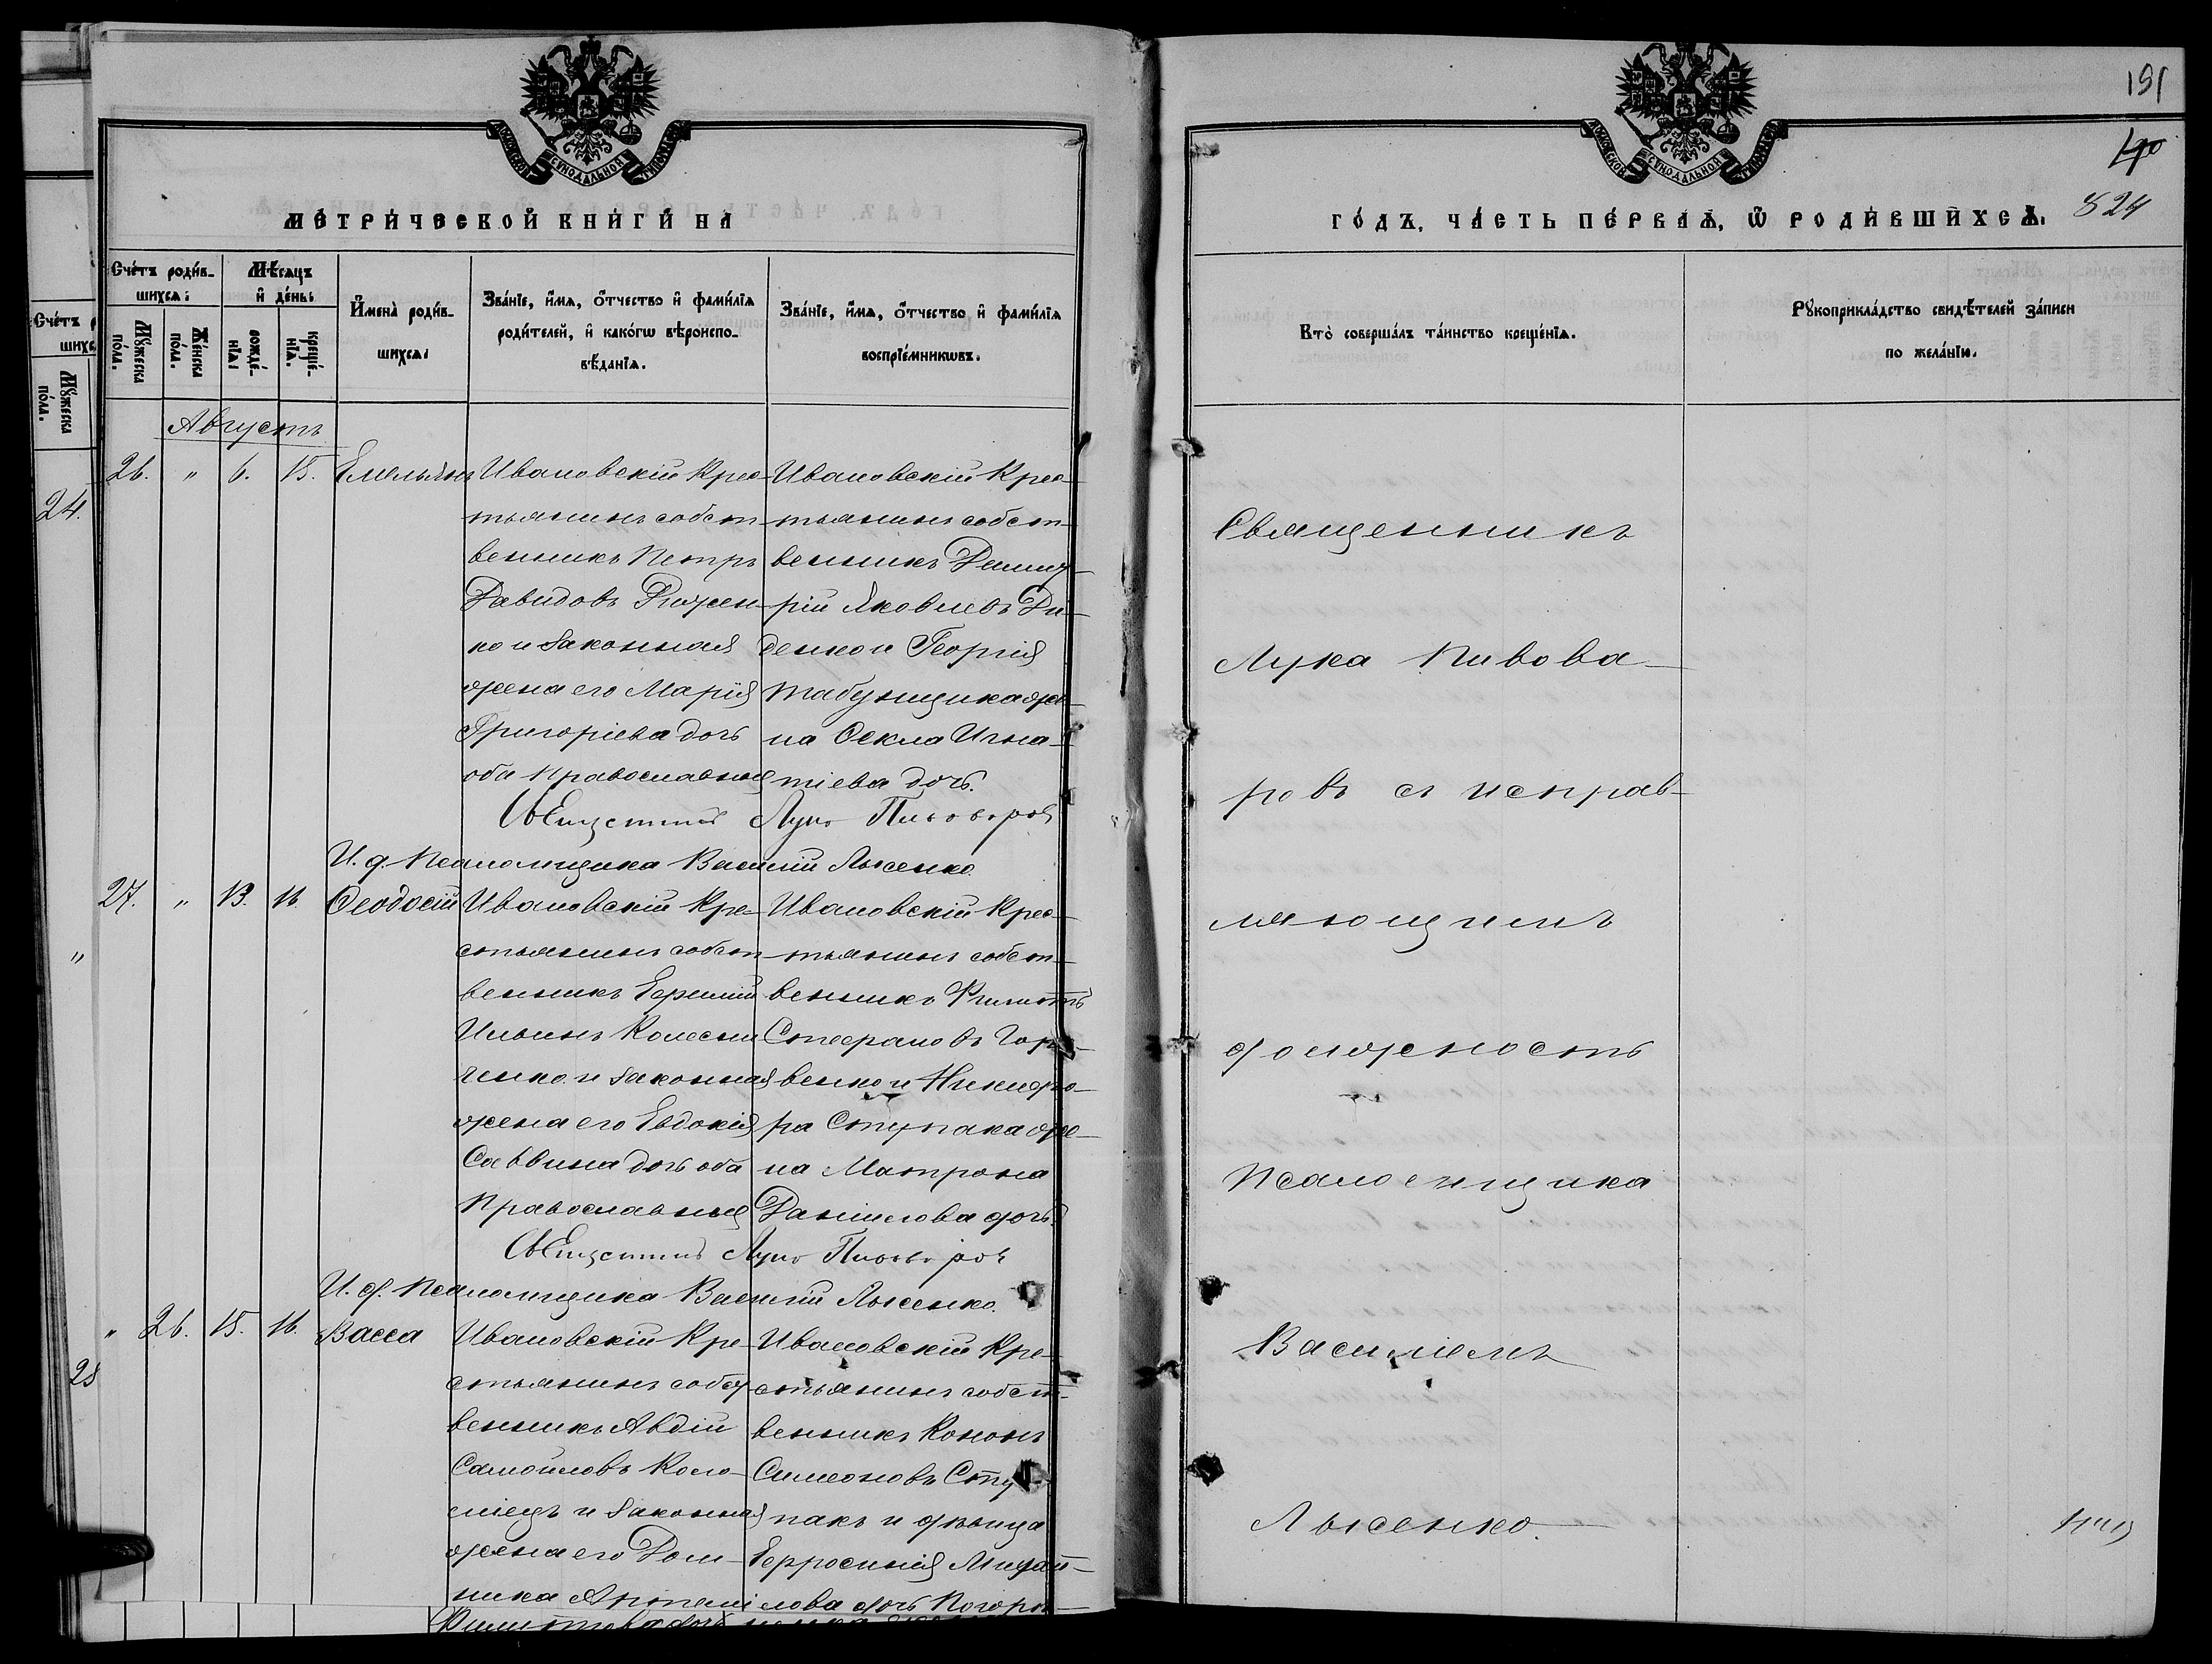 МЕТРИЧЕСКОЙ КНИГИ НА
Счетъ родив-
шихся:
Мѣсяцъ
и день:
Имена родив-
шихся:
Званіе, имя, отчество и фамилія
родителей, и какогѡ вѣроиспо-
вѣданія.
Званіе, имя, отчество и фамилія
воспріемникѡвъ.
Мꙋжеска
пола.
Женска
пола.
рожде-
нія:
креще-
нія.
Августъ
26. " 6. 15. Емельянъ
Ивановскій Крес-
тьянинъ собст-
венникъ Петръ
Давидовъ
ко и законная
жена его Марія
Григоріева дочь
оба православные
Ивановскій Крес-
тьянинъ собст-
венникъ Димит-
рій Яковлевъ Ди-
денко и Георгія
Табунщика же-
на Ѳекла Игна-
тіева дочь.
Священникъ Лука Пивоваровъ
И. д. Псаломщика Василій Лысенко.
27. " 13. 16. Ѳеодосій
Ивановскій Кре-
стьянинъ собст-
венникъ Еремій
Ильинъ Колесни-
ченко и законная
жена его Евдокія
Саввина дочь оба
Православные
Ивановскій Крес-
тьянинъ собст-
венникъ Филиппъ
Стефановъ Гор-
венко и Никифо-
ра Ступака же-
на Матрона
Даніилова дочь.
Священникъ Лука Пивоваровъ
И. д. Псаломщика Василій Лысенко.
" 26. 15. 16. Васса
Ивановскій Кре-
стьянинъ собст-
венникъ Авдій
Самойловъ Коло-
міецъ и законная
жена его Дом-
ника
Ивановскій Кре-
стьянинъ собст-
венникъ Кононъ
Симеоновъ Сту-
пакъ и дѣвица
Евфросинія Михай-
лова дочь
191
40
824
ГОДЪ, ЧАСТЬ ПЕРВАЯ, Ѿ РОДИВШИХСЯ.
Кто совершалъ таинство крещенія.
Рꙋкоприкладство свидѣтелей записи
по желанію.
Священникъ
Лука Пивова-
ровъ съ исправ-
ляющимъ
должность
Псаломщика
Василіемъ
Лысенко.
Счетъ
шихс
Мꙋжеска
пола.
24.
"
28